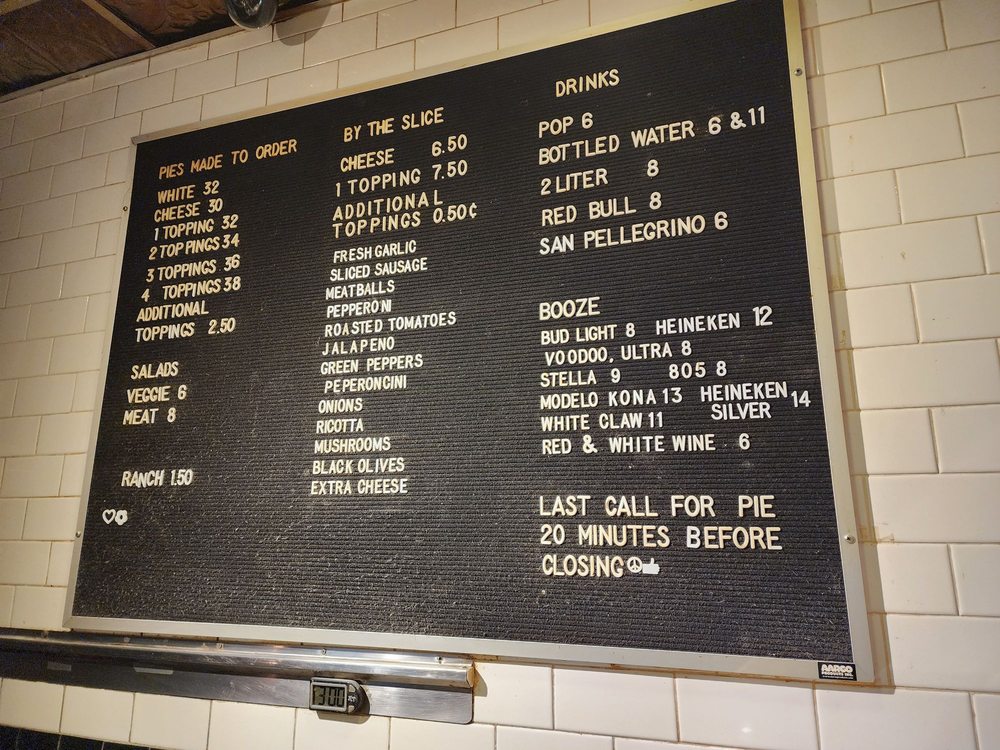 PIES MADE TO ORDER
WHITE 32
CHEESE 30
1 TOPPING 32
2 TOPPINGS 34
3 TOPPINGS 36
4 TOPPINGS 38
ADDITIONAL
TOPPINGS 2.50
SALADS
VEGGIE 6
MEAT 8
RANCH 1.50
BY THE SLICE
CHEESE 6.50
1 TOPPING 7.50
ADDITIONAL
TOPPINGS 0.50¢
FRESH GARLIC
SLICED SAUSAGE
MEATBALLS
PEPPERONI
ROASTED TOMATOES
JALAPENO
GREEN PEPPERS
PEPERONCINI
ONIONS
RICOTTA
MUSHROOMS
BLACK OLIVES
EXTRA CHEESE
DRINKS
POP 6
BOTTLED WATER 6 & 11
2 LITER 8
RED BULL 8
SAN PELLEGRINO 6
BOOZE
BUD LIGHT 8 HEINEKEN 12
VOODOO, ULTRA 8
STELLA 9 805 8
MODELO KONA 13 HEINEKEN 14
WHITE CLAW 11 SILVER
RED & WHITE WINE 6
LAST CALL FOR PIE
20 MINUTES BEFORE
CLOSING
AARCO
PRODUCTS INC.
3:00